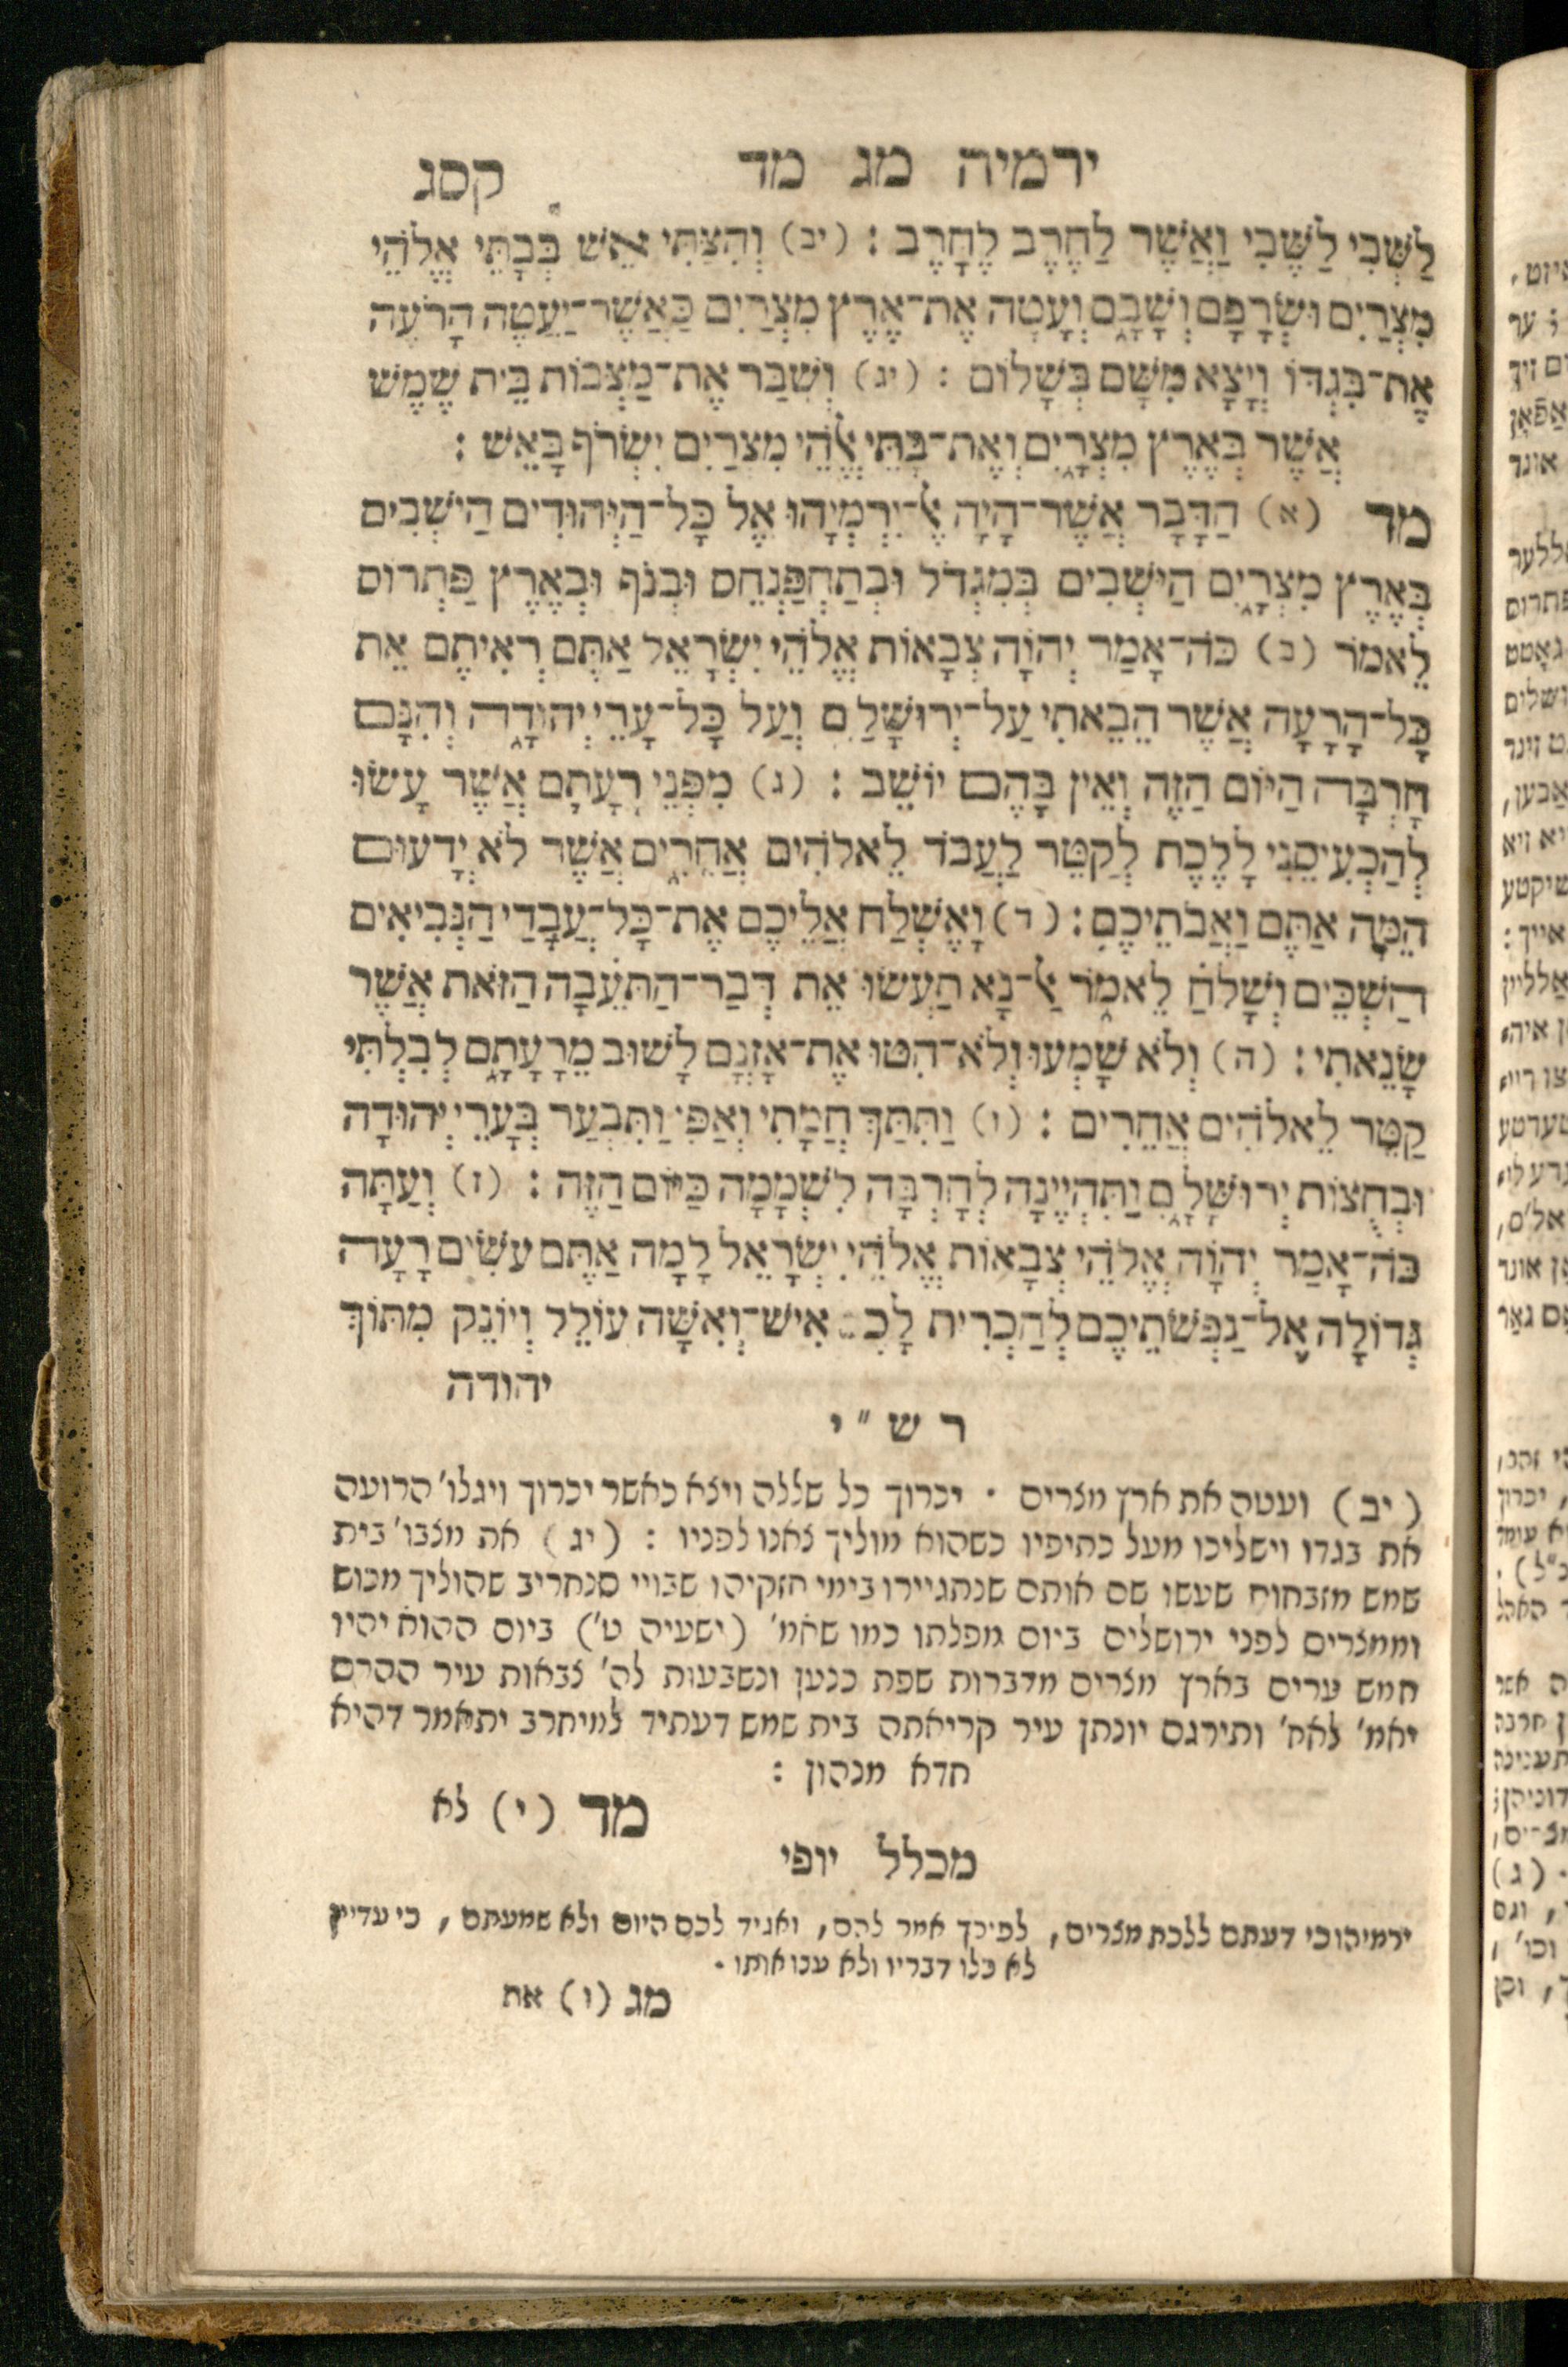 ירמיה מג מד קסג
לַשְּׁבִי לַשֶּׁבִי וַאֲשֶׁר לַחֶרֶב לֶחָרֶב : (יב) וְהִצַּתִּי אֵשׁ בְּבָתֵּי אֱלֹהֵי
מִצְרַיִם וּשְׂרָפָם וְשָׁבָם וְעָטָה אֶת־אֶרֶץ מִצְרַיִם כַּאֲשֶׁר־יַעֲטֶה הָרֹעֶה
אֶת־בִּגְדוֹ וְיָצָא מִשָּׁם בְּשָׁלוֹם : (יג) וְשִׁבַּר אֶת־מַצְּבוֹת בֵּית שֶׁמֶשׁ
אֲשֶׁר בְּאֶרֶץ מִצְרָיִם וְאֶת־בָּתֵּי אֱלֹהֵי מִצרַיִם יִשְׂרֹף בָּאֵשׁ :
מד (א) הַדָּבָר אֲשֶׁר־הָיָה אֶל־יִרְמְיָהוּ אֶל כָּל־הַיְּהוּדִים הַיֹּשְׁבִים
בְּאֶרֶץ מִצְרָיִם הַיֹּשְׁבִים בְּמִגְדֹּל וּבְתַחְפַּנְחֵס וּבְנֹף וּבְאֶרֶץ פַּתְרוֹס
לֵאמֹר (ב) כֹּה־אָמַר יְהוָֹה צְבָאוֹת אֱלֹהֵי יִשְׂרָאֵל אַתֶּם רְאִיתֶם אֵת
כָּל־הָרָעָה אֲשֶׁר הֵבֵאתִי עַל־יְרוּשָׁלִַם וְעַל כָּל־עָרֵי יְהוּדָה וְהִנָּם
חָרְבָּה הַיּוֹם הַזֶּה וְאֵין בָּהֶם יוֹשֵׁב : (ג) מִפְּנֵי רָעָתָם אֲשֶׁר עָשׂוּ
לְהַכְעִיסֵנִי לָלֶכֶת לְקַטֵּר לַעֲבֹד לֵאלֹהִים אֲחֵרִים אֲשֶׁר לֹא יְדָעוּם
הֵמָּה אַתֶּם וַאֲבֹתֵיכֶם : (ד) וָאֶשְׁלַח אֲלֵיכֶם אֶת־כָּל־עֲבָדַי הַנְּבִיאִים
הַשְׁכֵּים וְשָׁלֹחַ לֵאמֹר אַל־נָא תַעֲשׂוּ אֵת דְּבַר־הַתֹּעֵבָה הַזֹּאת אֲשֶׁר
שָׂנֵאתִי : (ה) וְלֹא שָׁמְעוּ וְלֹא־הִטּוּ אֶת־אָזְנָם לָשׁוּב מֵרָעָתָם לְבִלְתִּי
קַטֵּר לֵאלֹהִים אֲחֵרִים : (ו) וַתִּתַּךְ חֲמָתִי וְאַפִּי וַתִּבְעַר בְּעָרֵי יְהוּדָה
וּבְחֻצוֹת יְרוּשָׁלִָם וַתִּהְיֶינָה לְחָרְבָּה לִשְׁמָמָה כַּיּוֹם הַזֶּה : (ז) וְעַתָּה
כֹּה־אָמַר יְהוָֹה אֱלֹהֵי צְבָאוֹת אֱלֹהֵי יִשְׂרָאֵל לָמָה אַתֶּם עֹשִׂים רָעָה
גְּדוֹלָה אֶל־נַפְשֹׁתֵיכֶם לְהַכְרִית אִישׁ־וְאִשָּׁה עוֹלֵל וְיוֹנֵק מִתּוֹךְ
יהודה
רש״י
(יב) ועטה את ארץ מצרים . יכרוך כל שללה ויצא כאשר יכרוך ויגלו׳ הרועה
את בגדו וישליכו מעל כתיפיו כשהוא מוליך צאנו לפניו : (יג) את מצבו׳ בית
שמש מזבחות שעשו שם אותם שנתגיירו בימי חזקיהו שבויי סנחריב שהוליך מכוש
וממצרים לפני ירושלים ביום מפלתו כמו שאמ׳ (ישעיה ט׳) ביום ההוא יהיו
חמש ערים בארץ מצרים מדברות שפת כנען ונשבעות לה׳ צבאות עיר ההרם
יאמ׳ לאח׳ ותירגם יונתן עיר קריאתה בית שמש דעתיד למיחרב יתאמר דהיא
חדא מנהון :
מד (י) לא
מכלל יופי
ירמיהו כי דעתם ללכת מצרים, לפיכך אמר להם, ואגיד לכם היום ולא שמעתם, כי עדיין
לא כלו דבריו ולא ענו אותו .
מג (ו) את